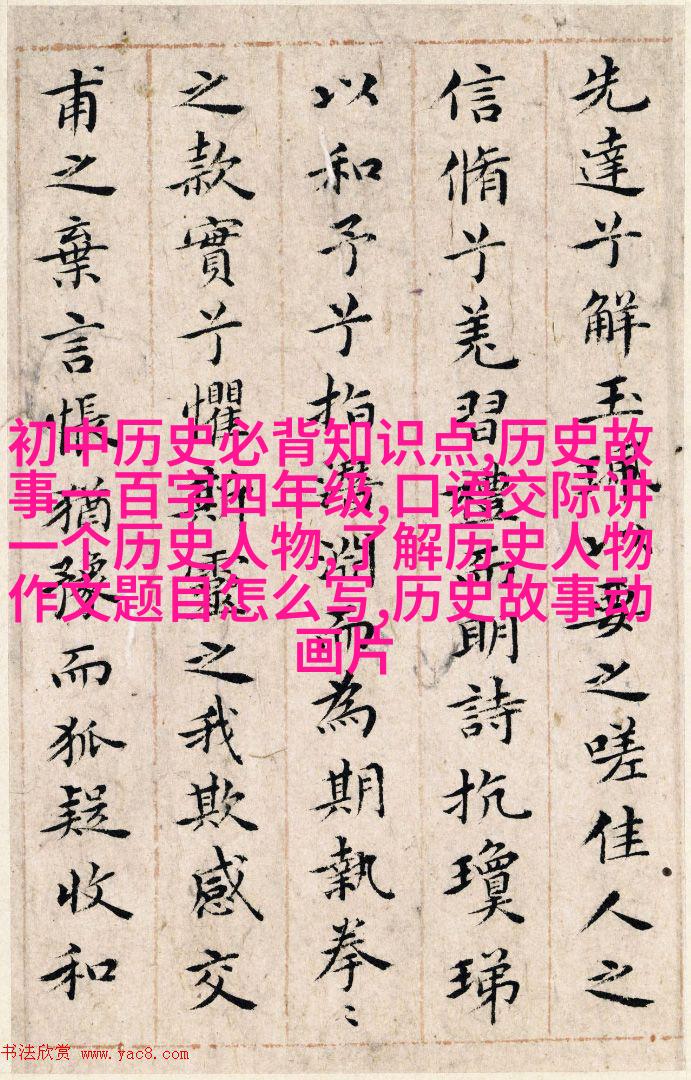 先達兮解玉珮以要之嗟佳人之
信脩兮羌習禮而明詩抗瓊珶
以和予兮指潛淵而為期執拳〻
之款實兮懼斯靈之我欺感交
甫之棄言悵猶豫而狐疑收和
初中历史必背知识点,历史故
事一百字四年级,口语交际讲
一个历史人物,了解历史人物
作文题目怎么写,历史故事动
画片
书法欣赏 www.yac8.com